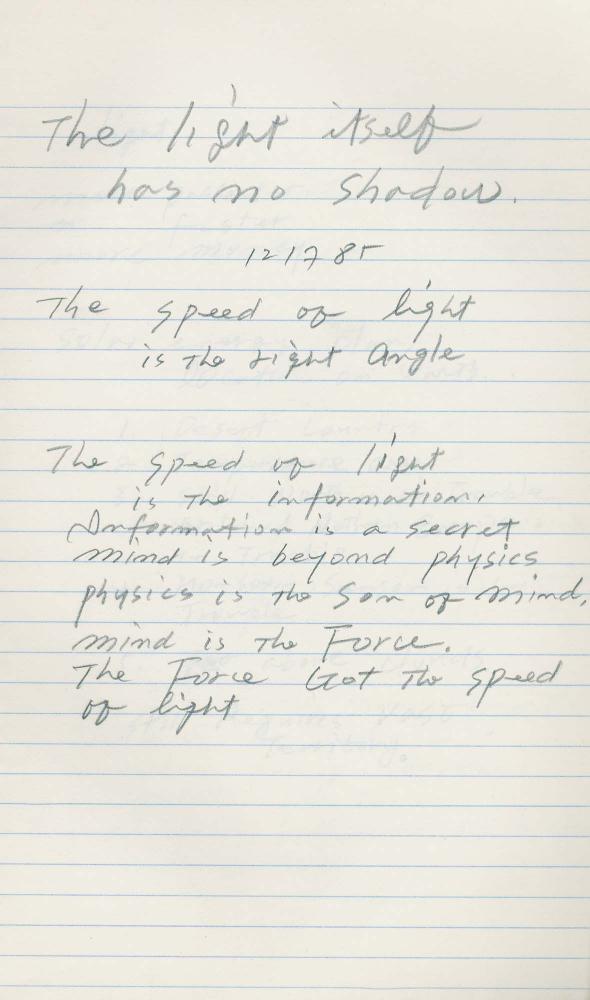 The light itself
has no shadow.
121785
The speed of light
is the right angle
The speed of light
is the information.
Information is a secret
mind is beyond physics
physics is the son of mind,
mind is the Force.
The Force Got the speed
of light